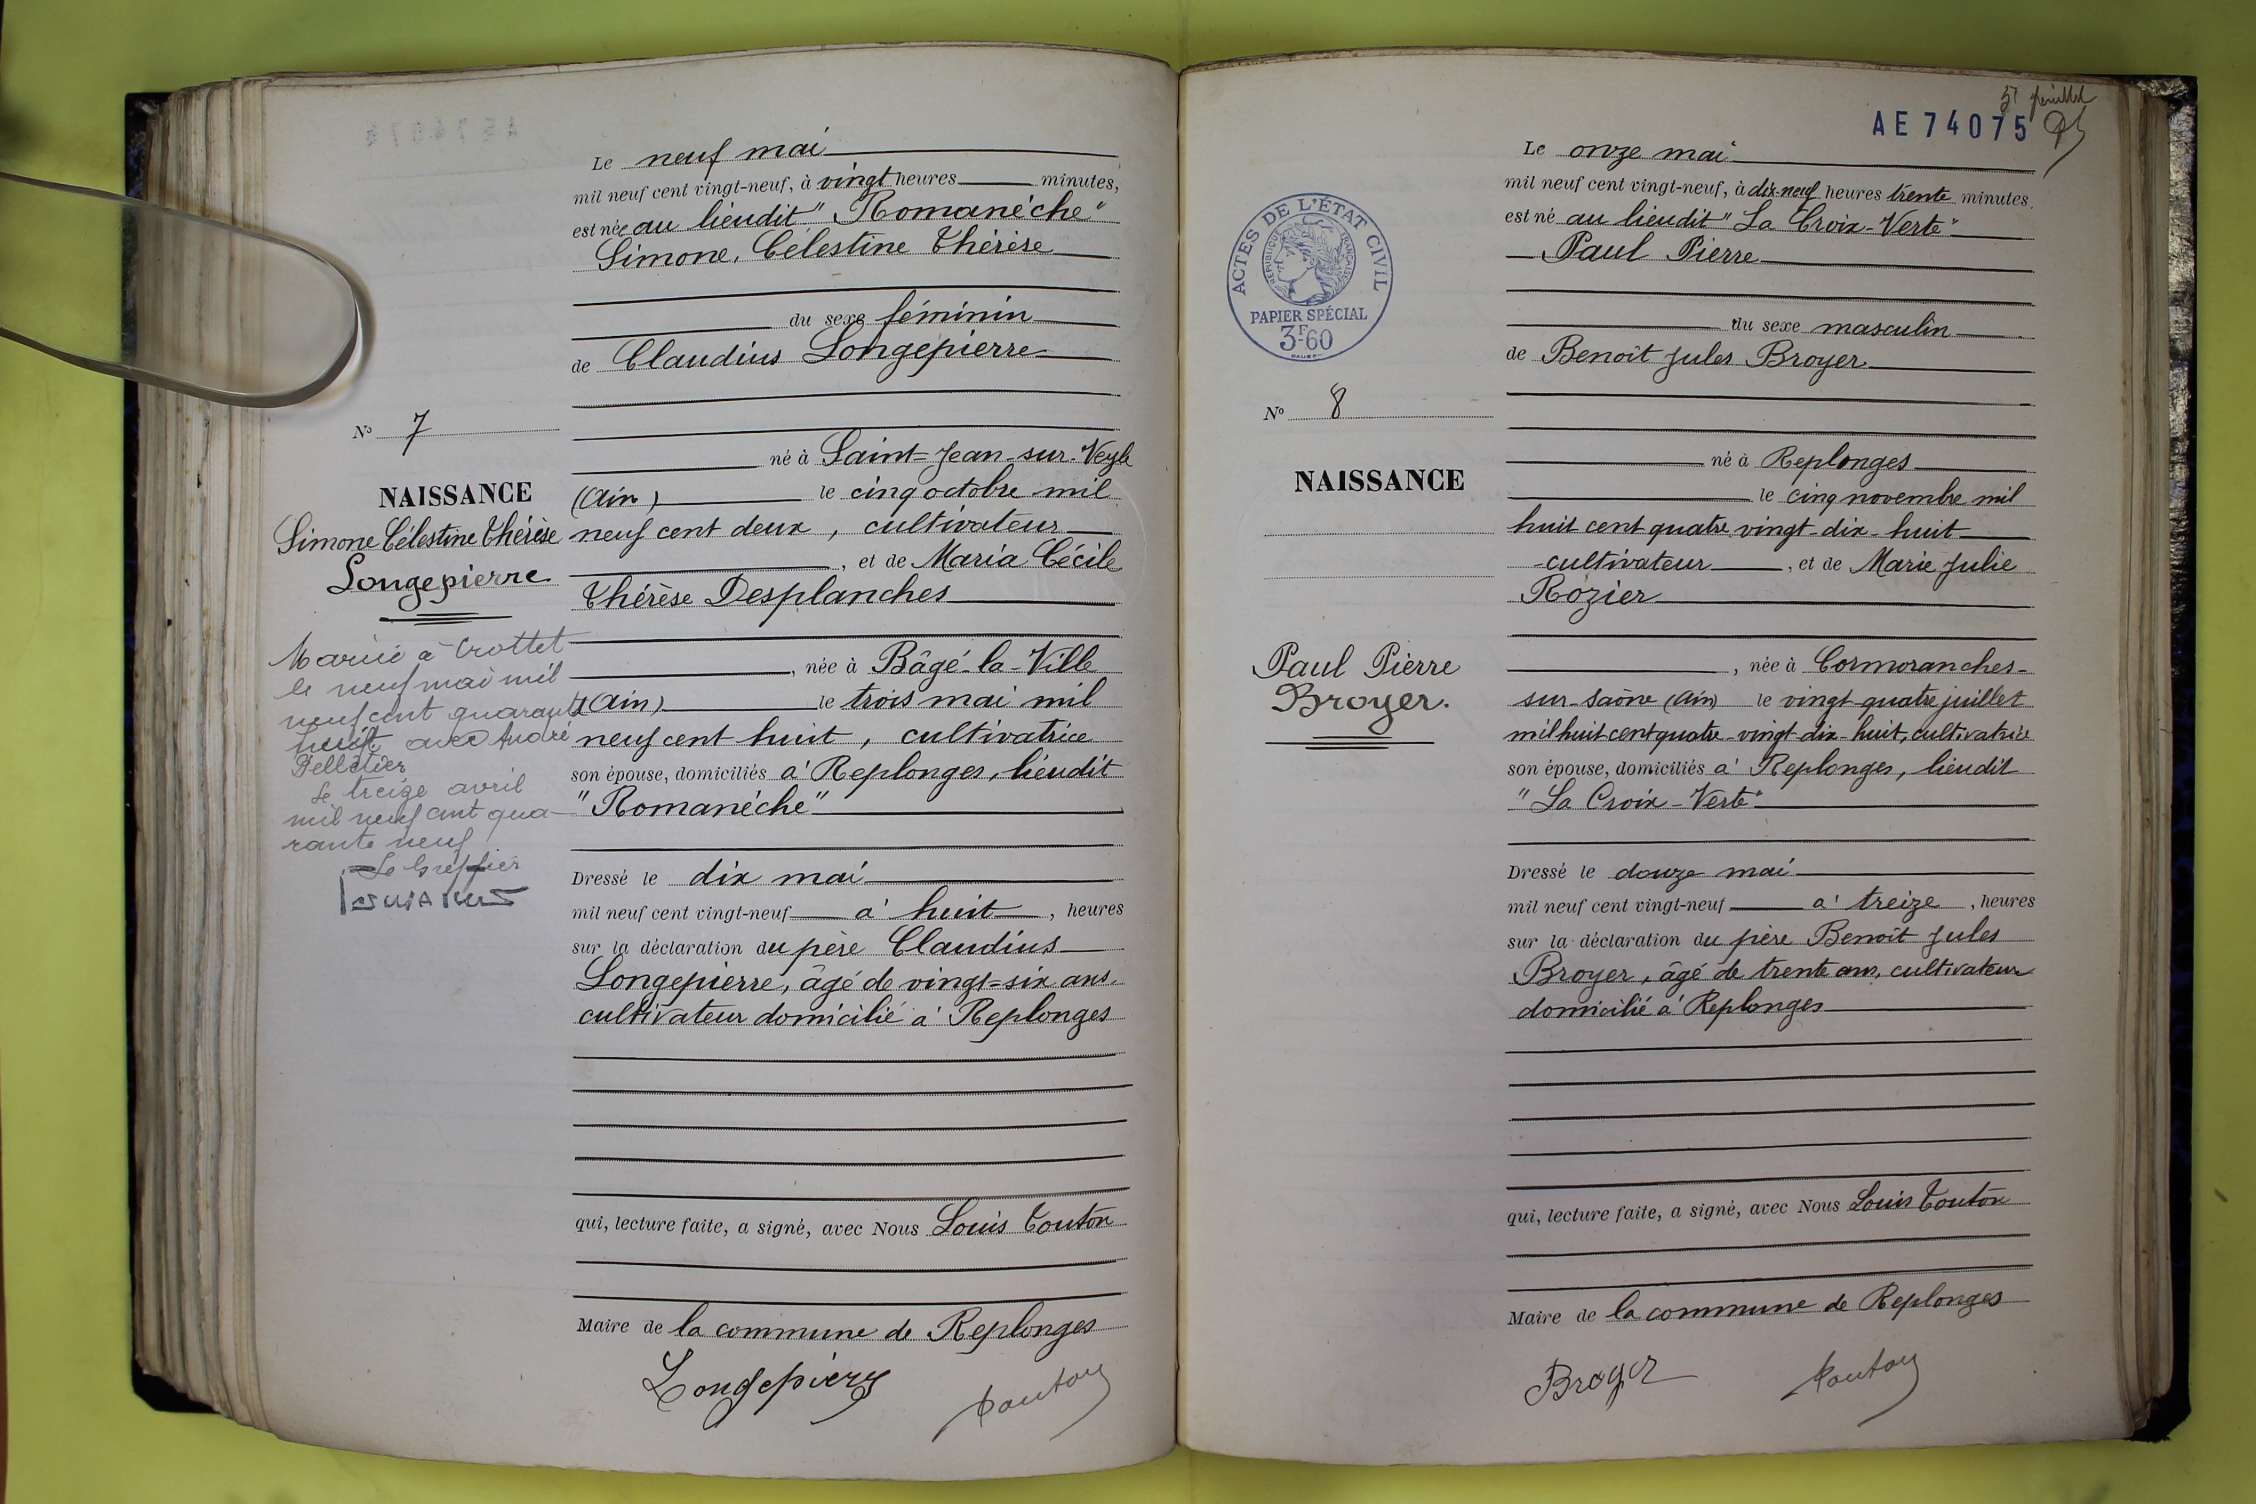 Le neuf mai
mil neuf cent vingt-neuf, à vingt heures minutes,
est née au lieudit "Romanéche"
Simone, Célestine Thérèse
du sexe féminin
de Claudius Longepierre
né à Saint-Jean-sur-Veyle
(Ain) le cinq octobre mil
neuf cent deux, cultivateur
, et de Maria Cécile
Thérèse Desplanches
, née à Bâgé-la-Ville
(Ain) le trois mai mil
neuf cent huit, cultivatrice
son épouse, domiciliés à Replonges, lieudit
"Romanéche"
Dressé le dix mai
mil neuf cent vingt-neuf à huit, heures
sur la déclaration du père Claudius
Longepierre, âgé de vingt-six ans,
cultivateur domicilié à Replonges
qui, lecture faite, a signé, avec Nous Louis Touton
Maire de la commune de Replonges
Longepierre
Touton
No 7
NAISSANCE
Simone Célestine Thérèse
Longepierre
Mariée à Crottet
le neuf mai mil
neuf cent quarante
huit avec André
Pelletier
Le treize avril
mil neuf cent qua-
rante neuf
Le Greffier
5e feuillet
AE 74075
Le onze mai
mil neuf cent vingt-neuf, à dix-neuf heures trente minutes.
est né au lieudit "La Croix-Verte"
Paul Pierre
du sexe masculin
de Benoît Jules Broyer
né à Replonges
le cinq novembre mil
huit cent quatre vingt-dix-huit
cultivateur, et de Marie Julie
Rozier
, née à Cormoranches-
sur-Saône (Ain) le vingt-quatre juillet
mil huit cent quatre-vingt-dix-huit, cultivatrice
son épouse, domiciliés à Replonges, lieudit
"La Croix-Verte"
Dressé le douze mai
mil neuf cent vingt-neuf à treize, heures
sur la déclaration du père Benoît Jules
Broyer, âgé de trente ans, cultivateur
domicilié à Replonges
qui, lecture faite, a signé, avec Nous Louis Touton
Maire de la commune de Replonges
Broyer
Touton
ACTES DE L'ÉTAT CIVIL
RÉPUBLIQUE FRANÇAISE
PAPIER SPÉCIAL
3F60
No 8
NAISSANCE
Paul Pierre
Broyer.